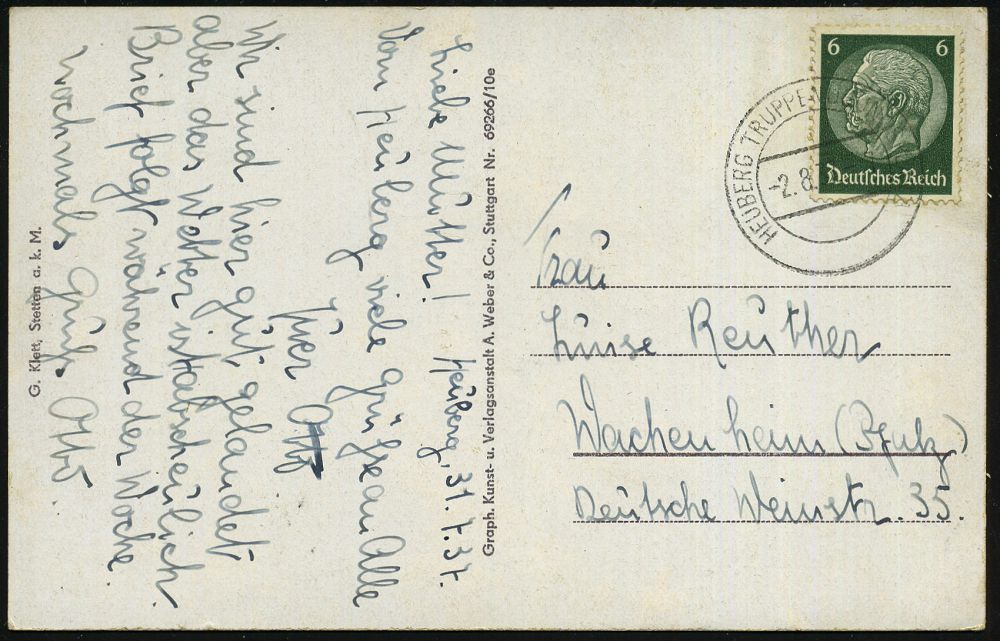 Heuberg, 31.7.37.
Liebe Mutter!
Vom Heuberg viele Grüße an Alle
Euer
Otto
Wir sind hier gut gelandet
aber das Wetter ist abscheulich.
Brief folgt während der Woche.
nochmals Gruß Otto.
G. Klett, Stetten a. k. M.
Graph. Kunst- u. Verlagsanstalt A. Weber & Co., Stuttgart Nr. 69266/10e
6 6
Deutsches Reich
HEUBERG TRUPPE
-2.8.
Frau
Luise Reuther
Wachenheim (Pfalz)
Deutsche Weinstr. 35.